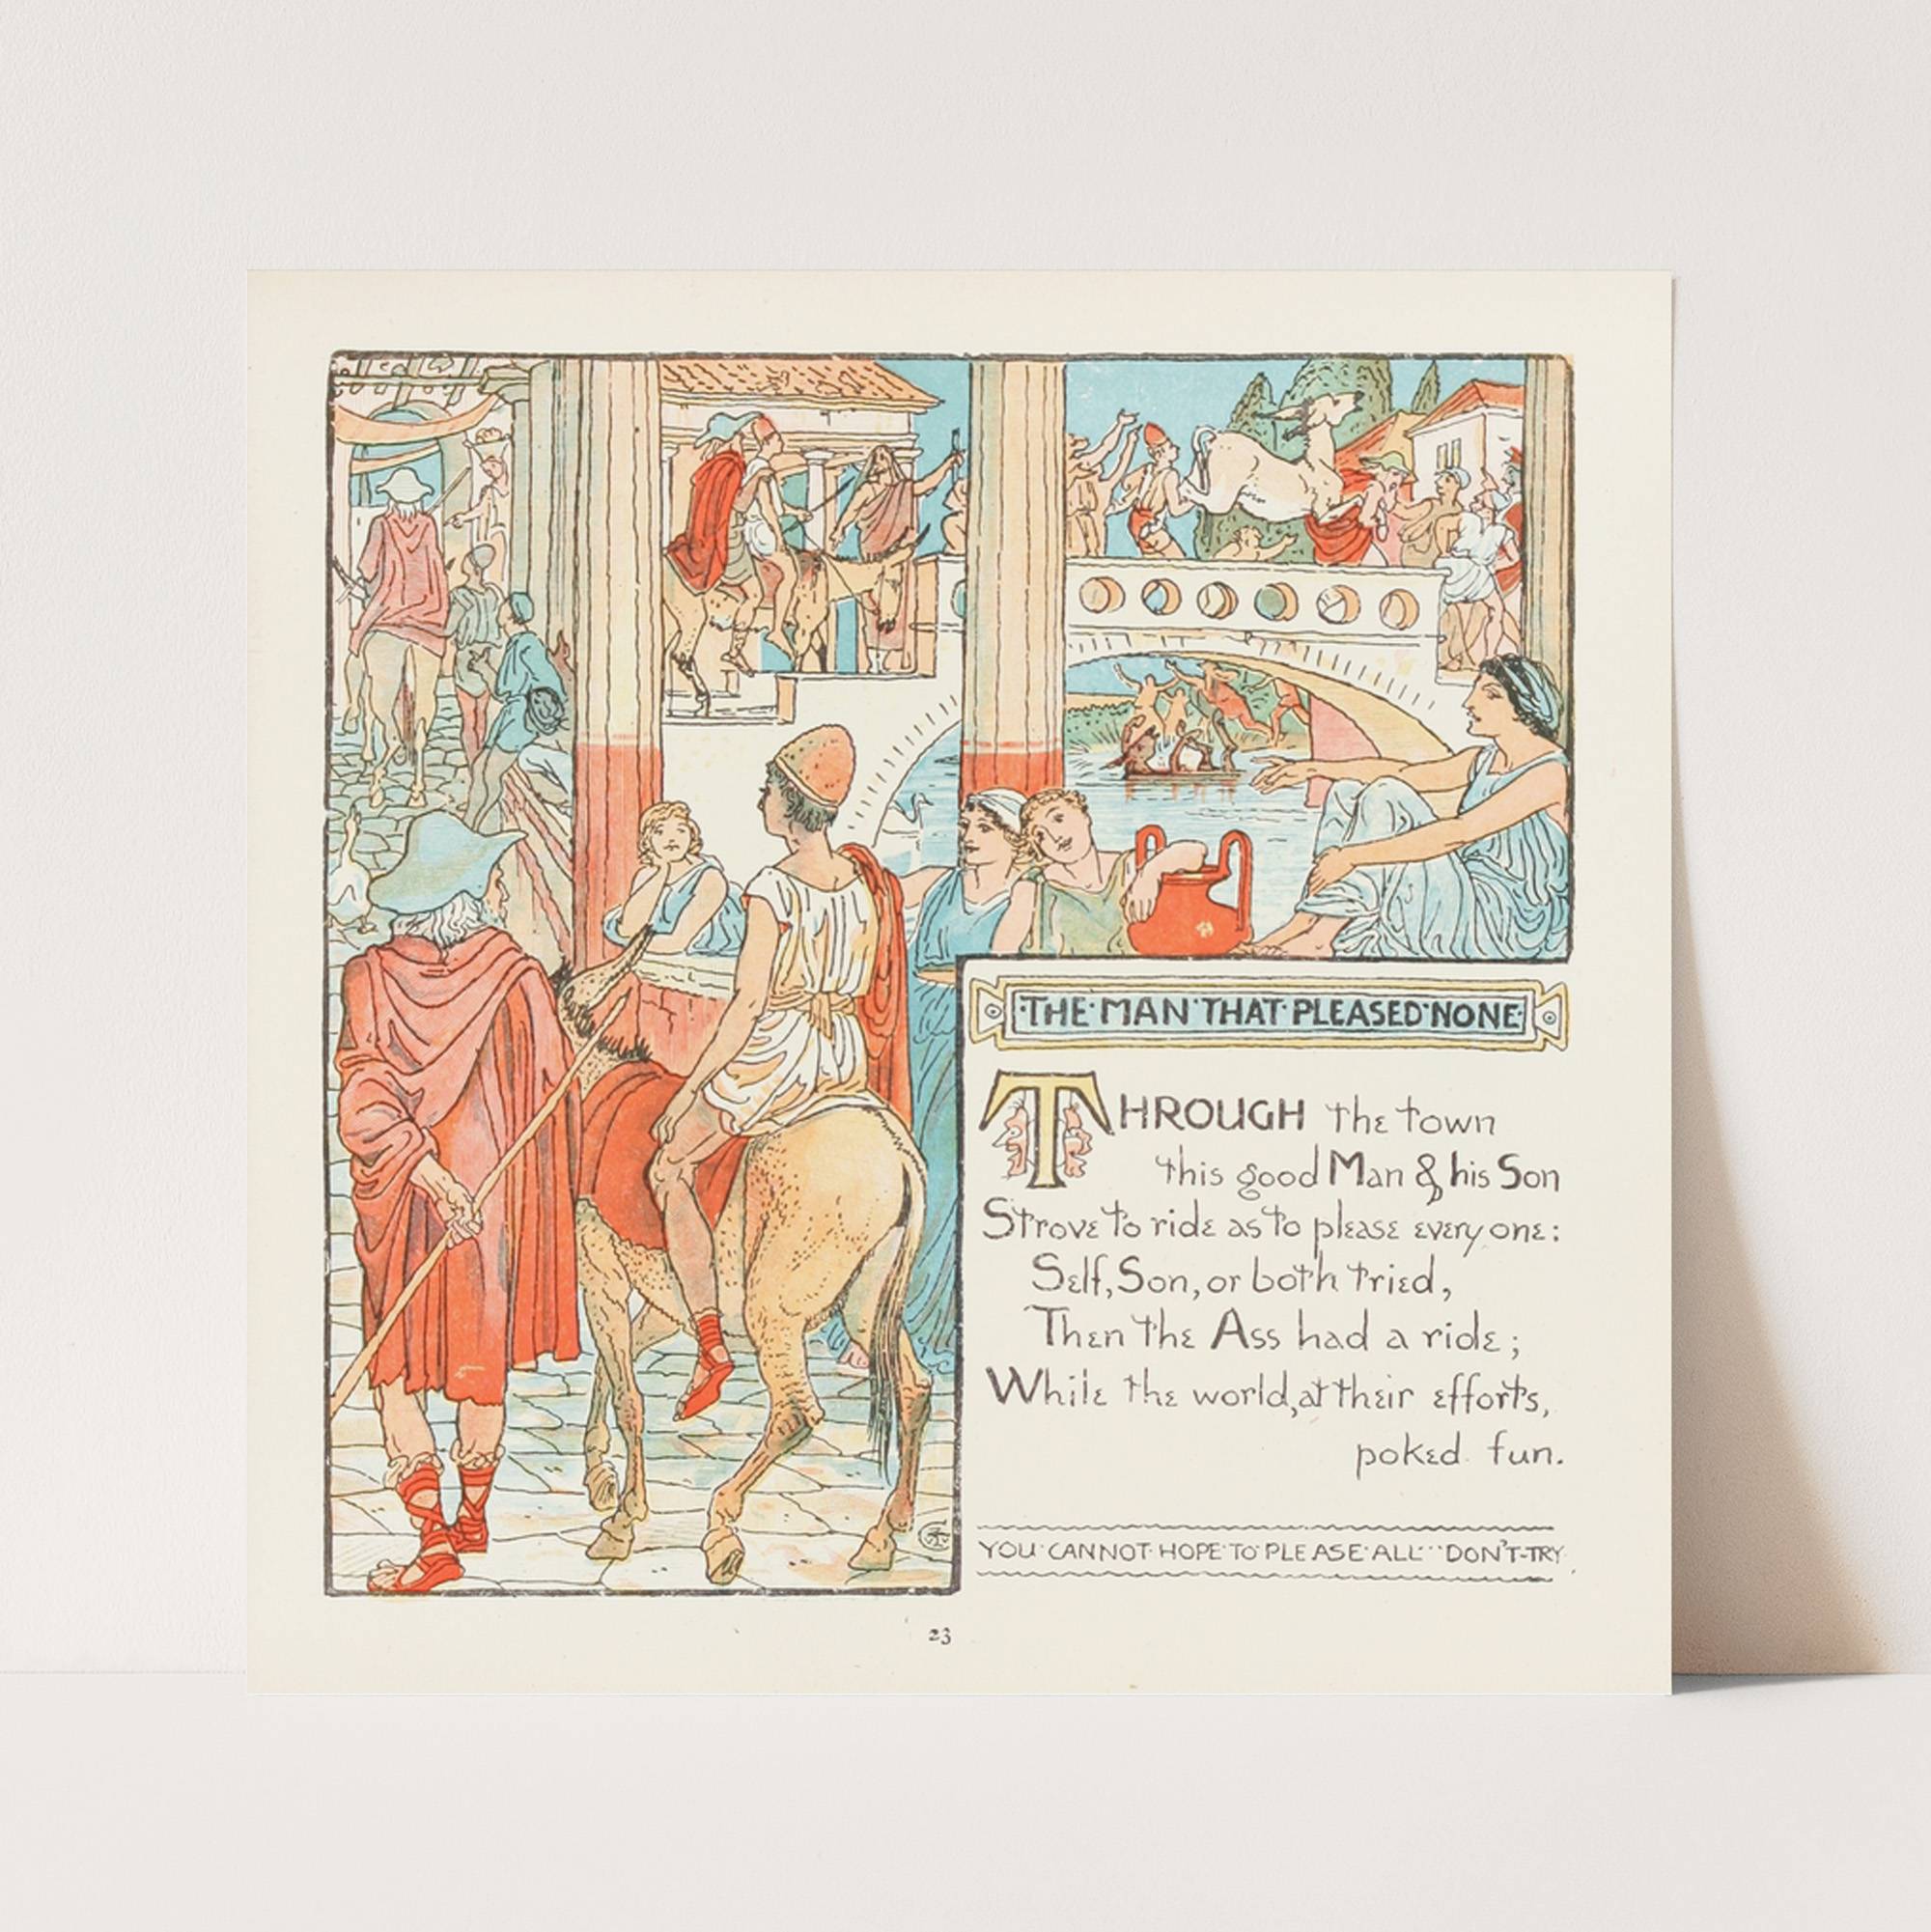 ·THE·MAN·THAT·PLEASED·NONE·
THROUGH the town
this good Man & his Son
Strove to ride as to please every one:
Self, Son, or both tried,
Then the Ass had a ride;
While the world, at their efforts,
poked fun.
YOU·CANNOT·HOPE·TO·PLEASE·ALL···DON'T-TRY
23